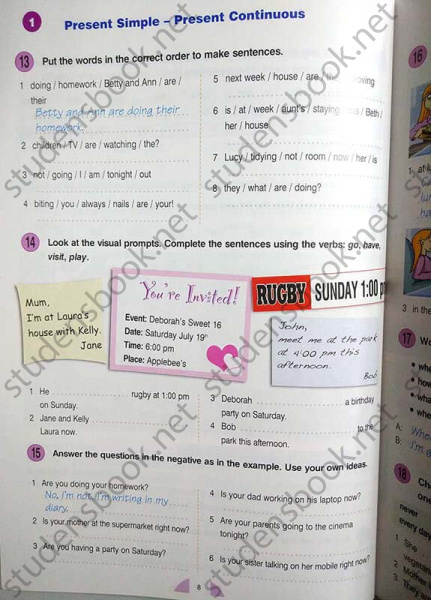 1 Present Simple – Present Continuous
13 Put the words in the correct order to make sentences.
1 doing / homework / Betty and Ann / are /
their
Betty and Ann are doing their
homework.
2 children / TV / are / watching / the?
3 not / going / I / am / tonight / out
4 biting / you / always / nails / are / your!
5 next week / house / are /
6 is / at / week / aunt's / staying / Beth /
her / house
7 Lucy / tidying / not / room / now / her / is
8 they / what / are / doing?
14 Look at the visual prompts. Complete the sentences using the verbs: go, have,
visit, play.
Mum,
I'm at Laura's
house with Kelly.
Jane
You're Invited!
Event: Deborah's Sweet 16
Date: Saturday July 19th
Time: 6:00 pm
Place: Applebee's
RUGBY SUNDAY 1:00
John,
meet me at the park
at 4:00 pm this
afternoon.
Bob
1 He ........ rugby at 1:00 pm
on Sunday.
2 Jane and Kelly ........
Laura now.
3 Deborah ........ a birthday
party on Saturday.
4 Bob ........ to the
park this afternoon.
15 Answer the questions in the negative as in the example. Use your own ideas.
1 Are you doing your homework?
No, I'm not. I'm writing in my
diary.
2 Is your mother at the supermarket right now?
3 Are you having a party on Saturday?
4 Is your dad working on his laptop now?
5 Are your parents going to the cinema
tonight?
6 Is your sister talking on her mobile right now?
8
16
3 in the
17
A:
B:
18
never
every day
1 She
2 Mother
3 They
studensbook.net